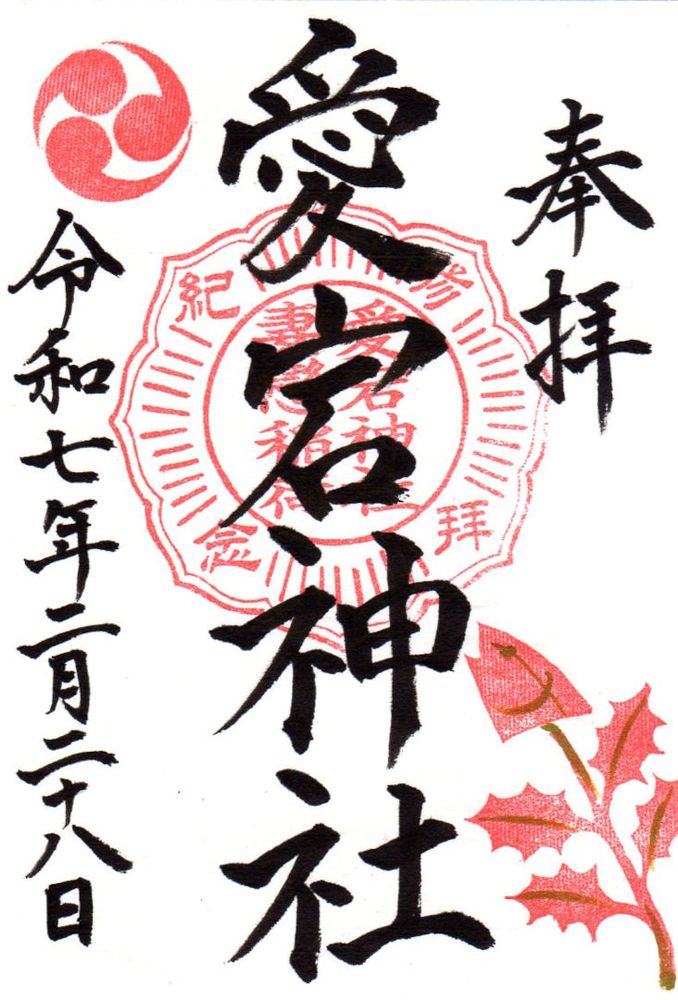 奉拝
愛宕神社
令和七年二月二十八日
愛宕神社
稲荷
拝
紀念